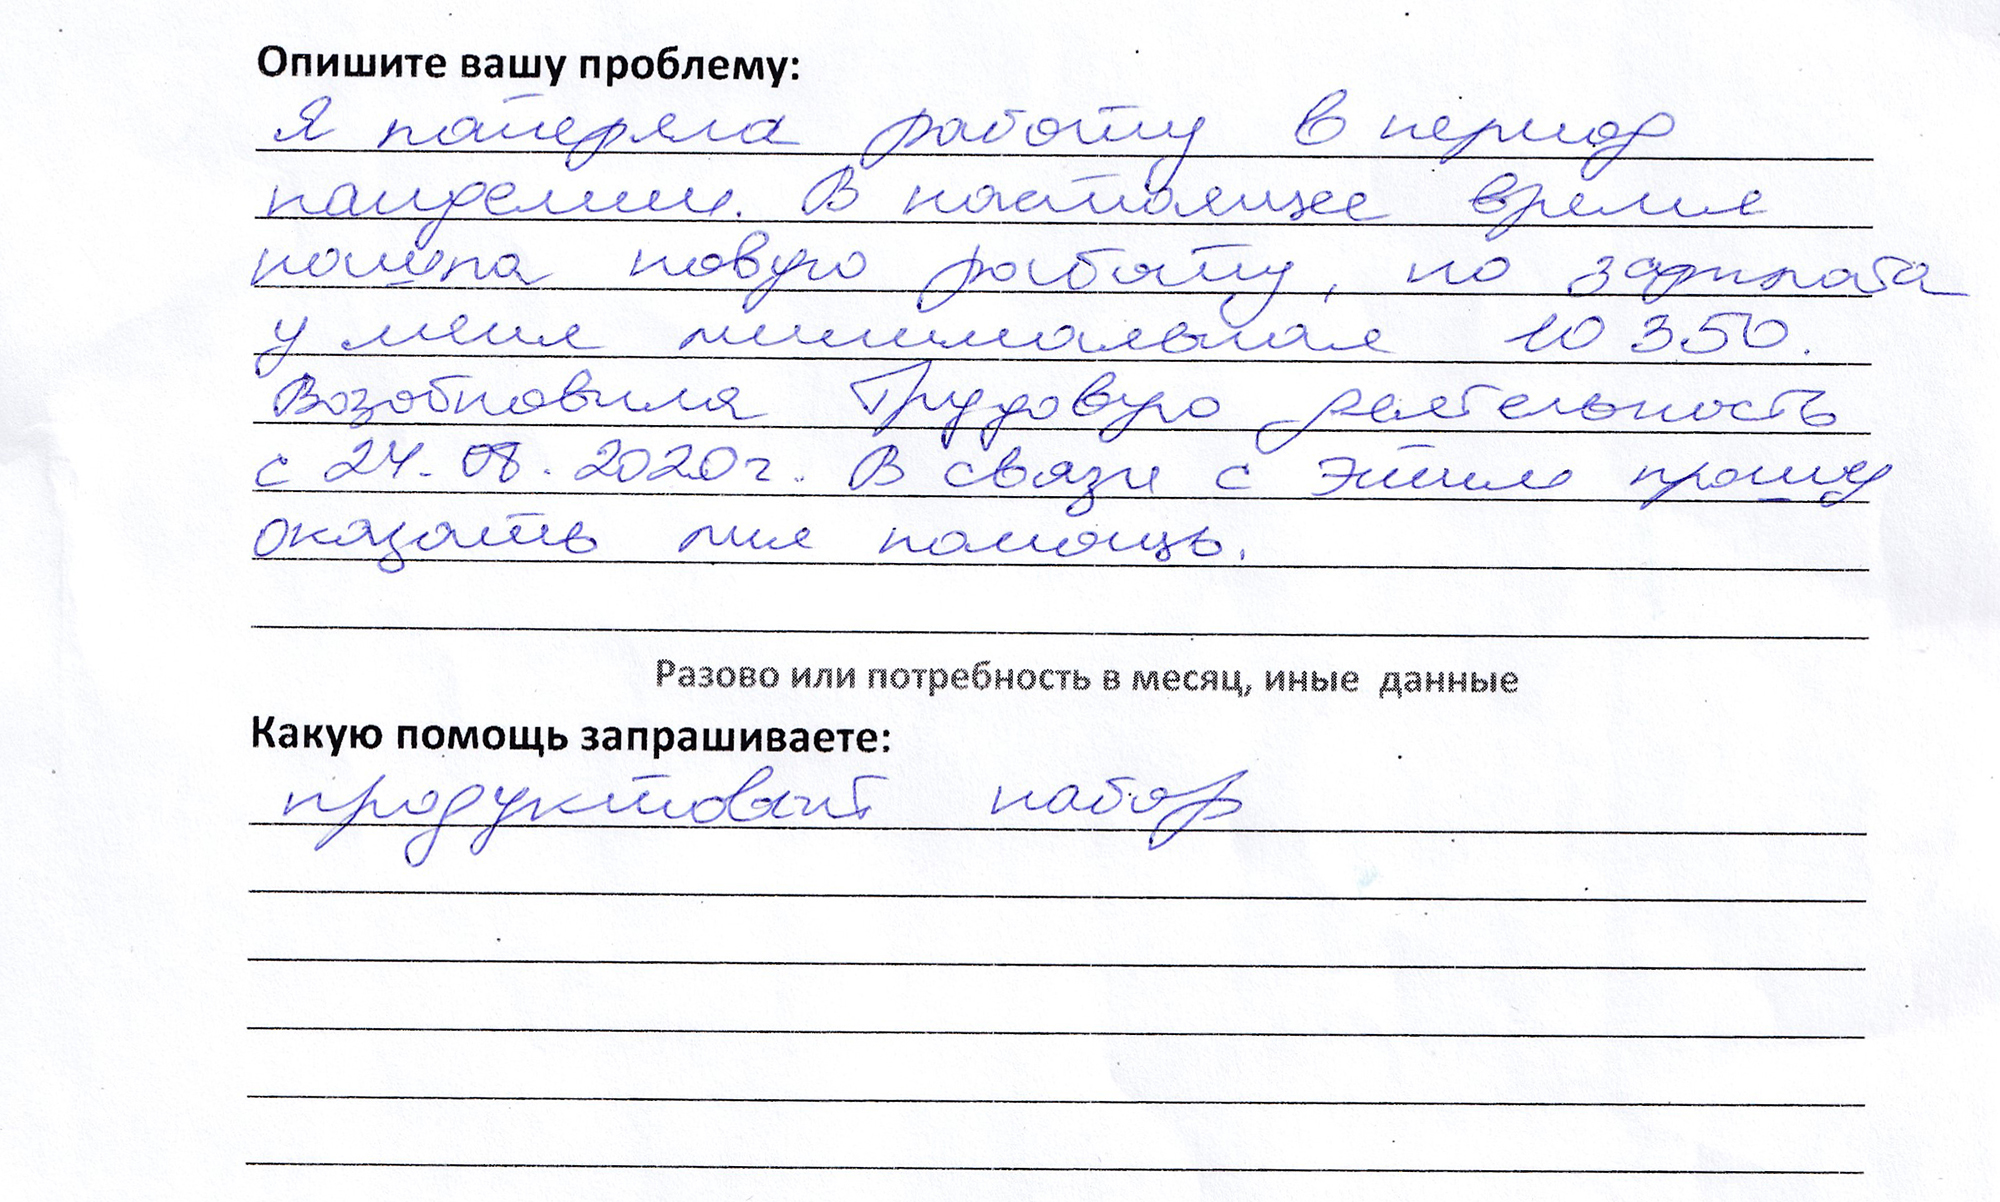 Опишите вашу проблему:
Я потеряла работу в период
пандемии. В настоящее время
нашла новую работу, но зарплата
у меня минимальная 10 350.
Возобновила Трудовую деятельность
с 24.08.2020г. В связи с этим прошу
оказать мне помощь.
Разово или потребность в месяц, иные данные
Какую помощь запрашиваете:
продуктовый набор